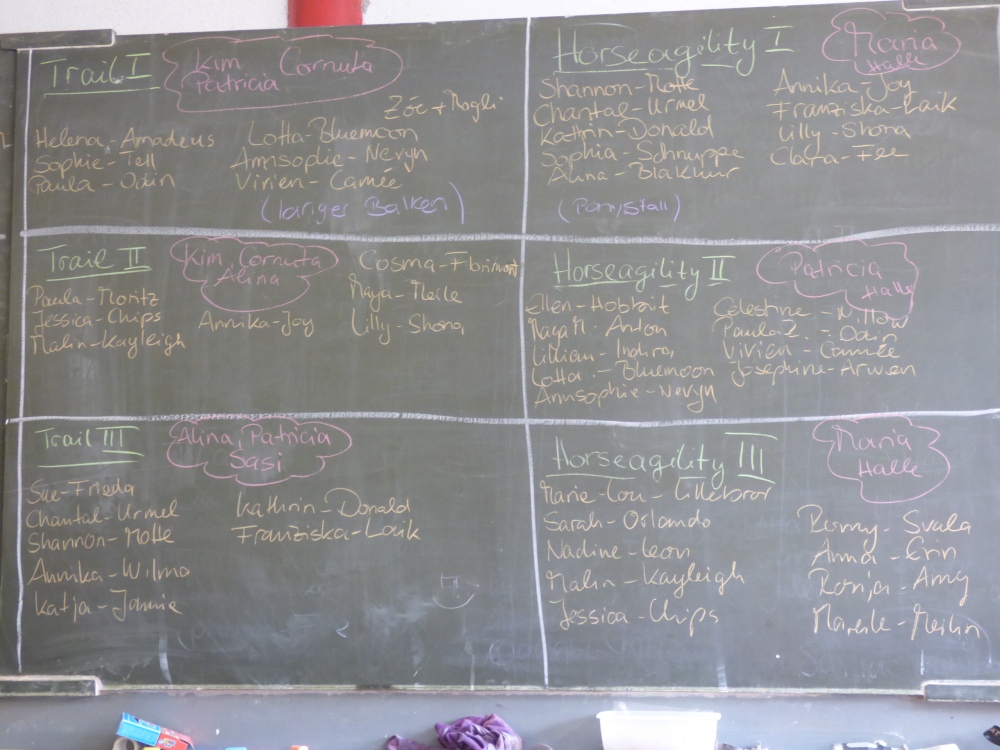 Trail I
Kim Cornuta
Patricia
Zoe + Mogli
Helena - Amadeus
Sophie - Tell
Paula - Odin
Lotta - Bluemoon
Annsophie - Nevyn
Vivien - Camée
(langer Balken)
Horseagility I
Maria
Halle
Shannon - Motte
Chantal - Urmel
Kathrin - Donald
Sophia - Schnuppe
Alina - Blakkur
Annika - Joy
Franziska - Loik
Lilly - Shona
Clara - Fee
(Ponystall)
Trail II
Kim, Cornuta
Alina
Paula - Moritz
Jessica - Chips
Malin - Kayleigh
Annika - Joy
Cosma - Florimont
Maya - Meile
Lilly - Shona
Horseagility II
Patricia
Halle
Ellen - Hobbit
Maya M. - Anton
Lillian - Indira
Lotta - Bluemoon
Annsophie - Nevyn
Celestine -
Paula Z. - Odin
Vivien - Camée
Josephine - Arwen
Trail III
Alina, Patricia
Sasi
Sue - Frieda
Chantal - Urmel
Shannon - Motte
Annika - Wilma
Katja - Jannie
Kathrin - Donald
Franziska - Loik
Horseagility III
Maria
Halle
Marie-Lou - Lillebror
Sarah - Orlando
Nadine - Leon
Malin - Kayleigh
Jessica - Chips
Romy - Svala
Anna - Erin
Ronja - Amy
Mareile - Merlin